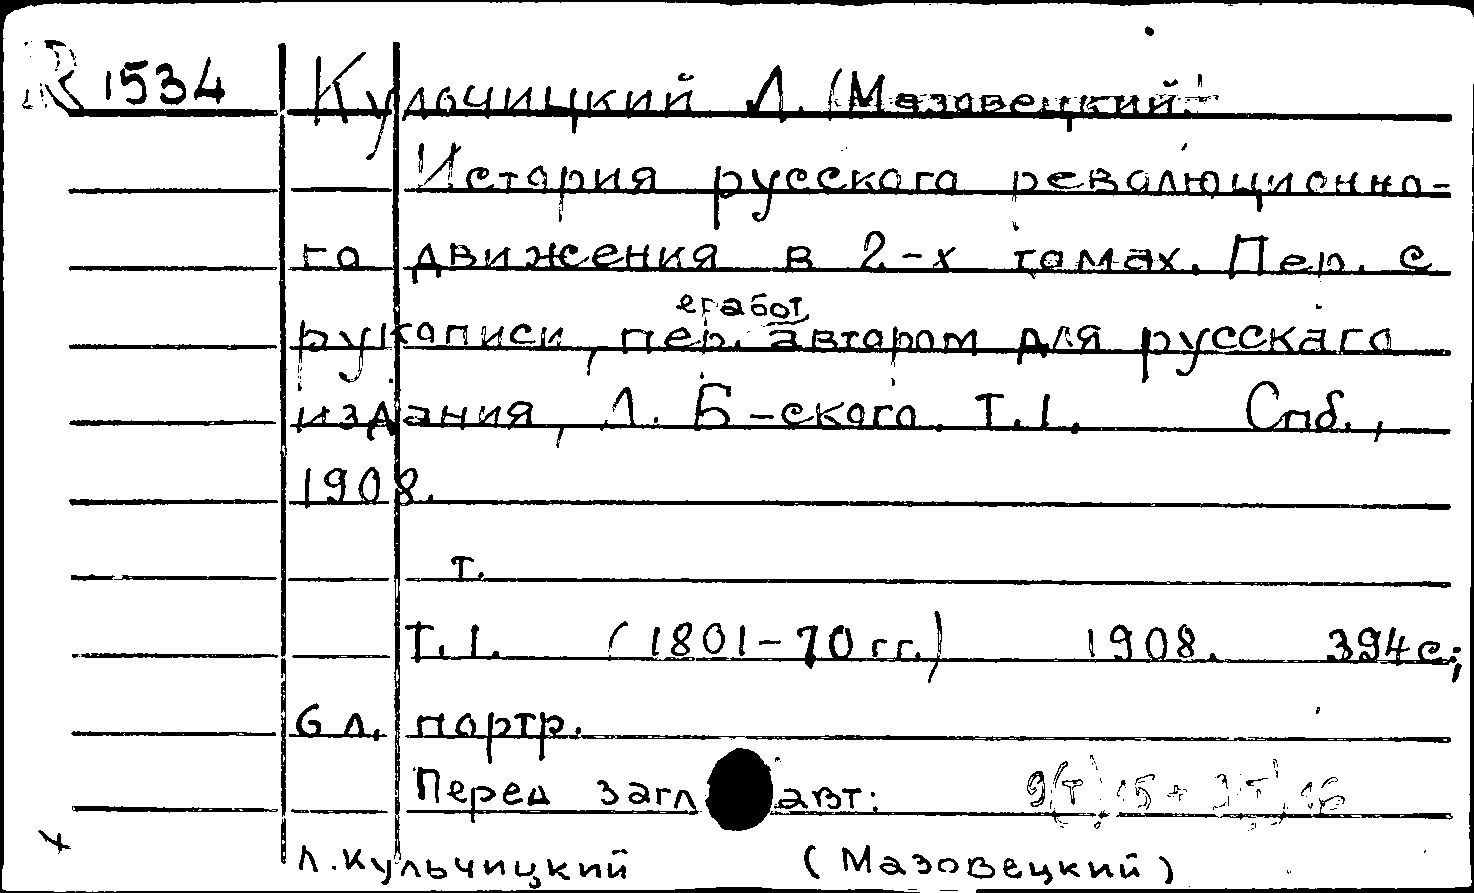 R 1534 Кульчицкий Л. (Мазовецкий)
История русского революционно-
го движения в 2-х томах. Пер. с
еработ.
рукописи, пер. автором для русскаго
издания, Л. Б-ского. Т.1. Спб.,
1908.
т.
Т.1. (1801-70 гг.) 1908. 394с;
6 л. портр.
Перед загл авт: 9(Т)15+
Л.Кульчицкий (Мазовецкий)